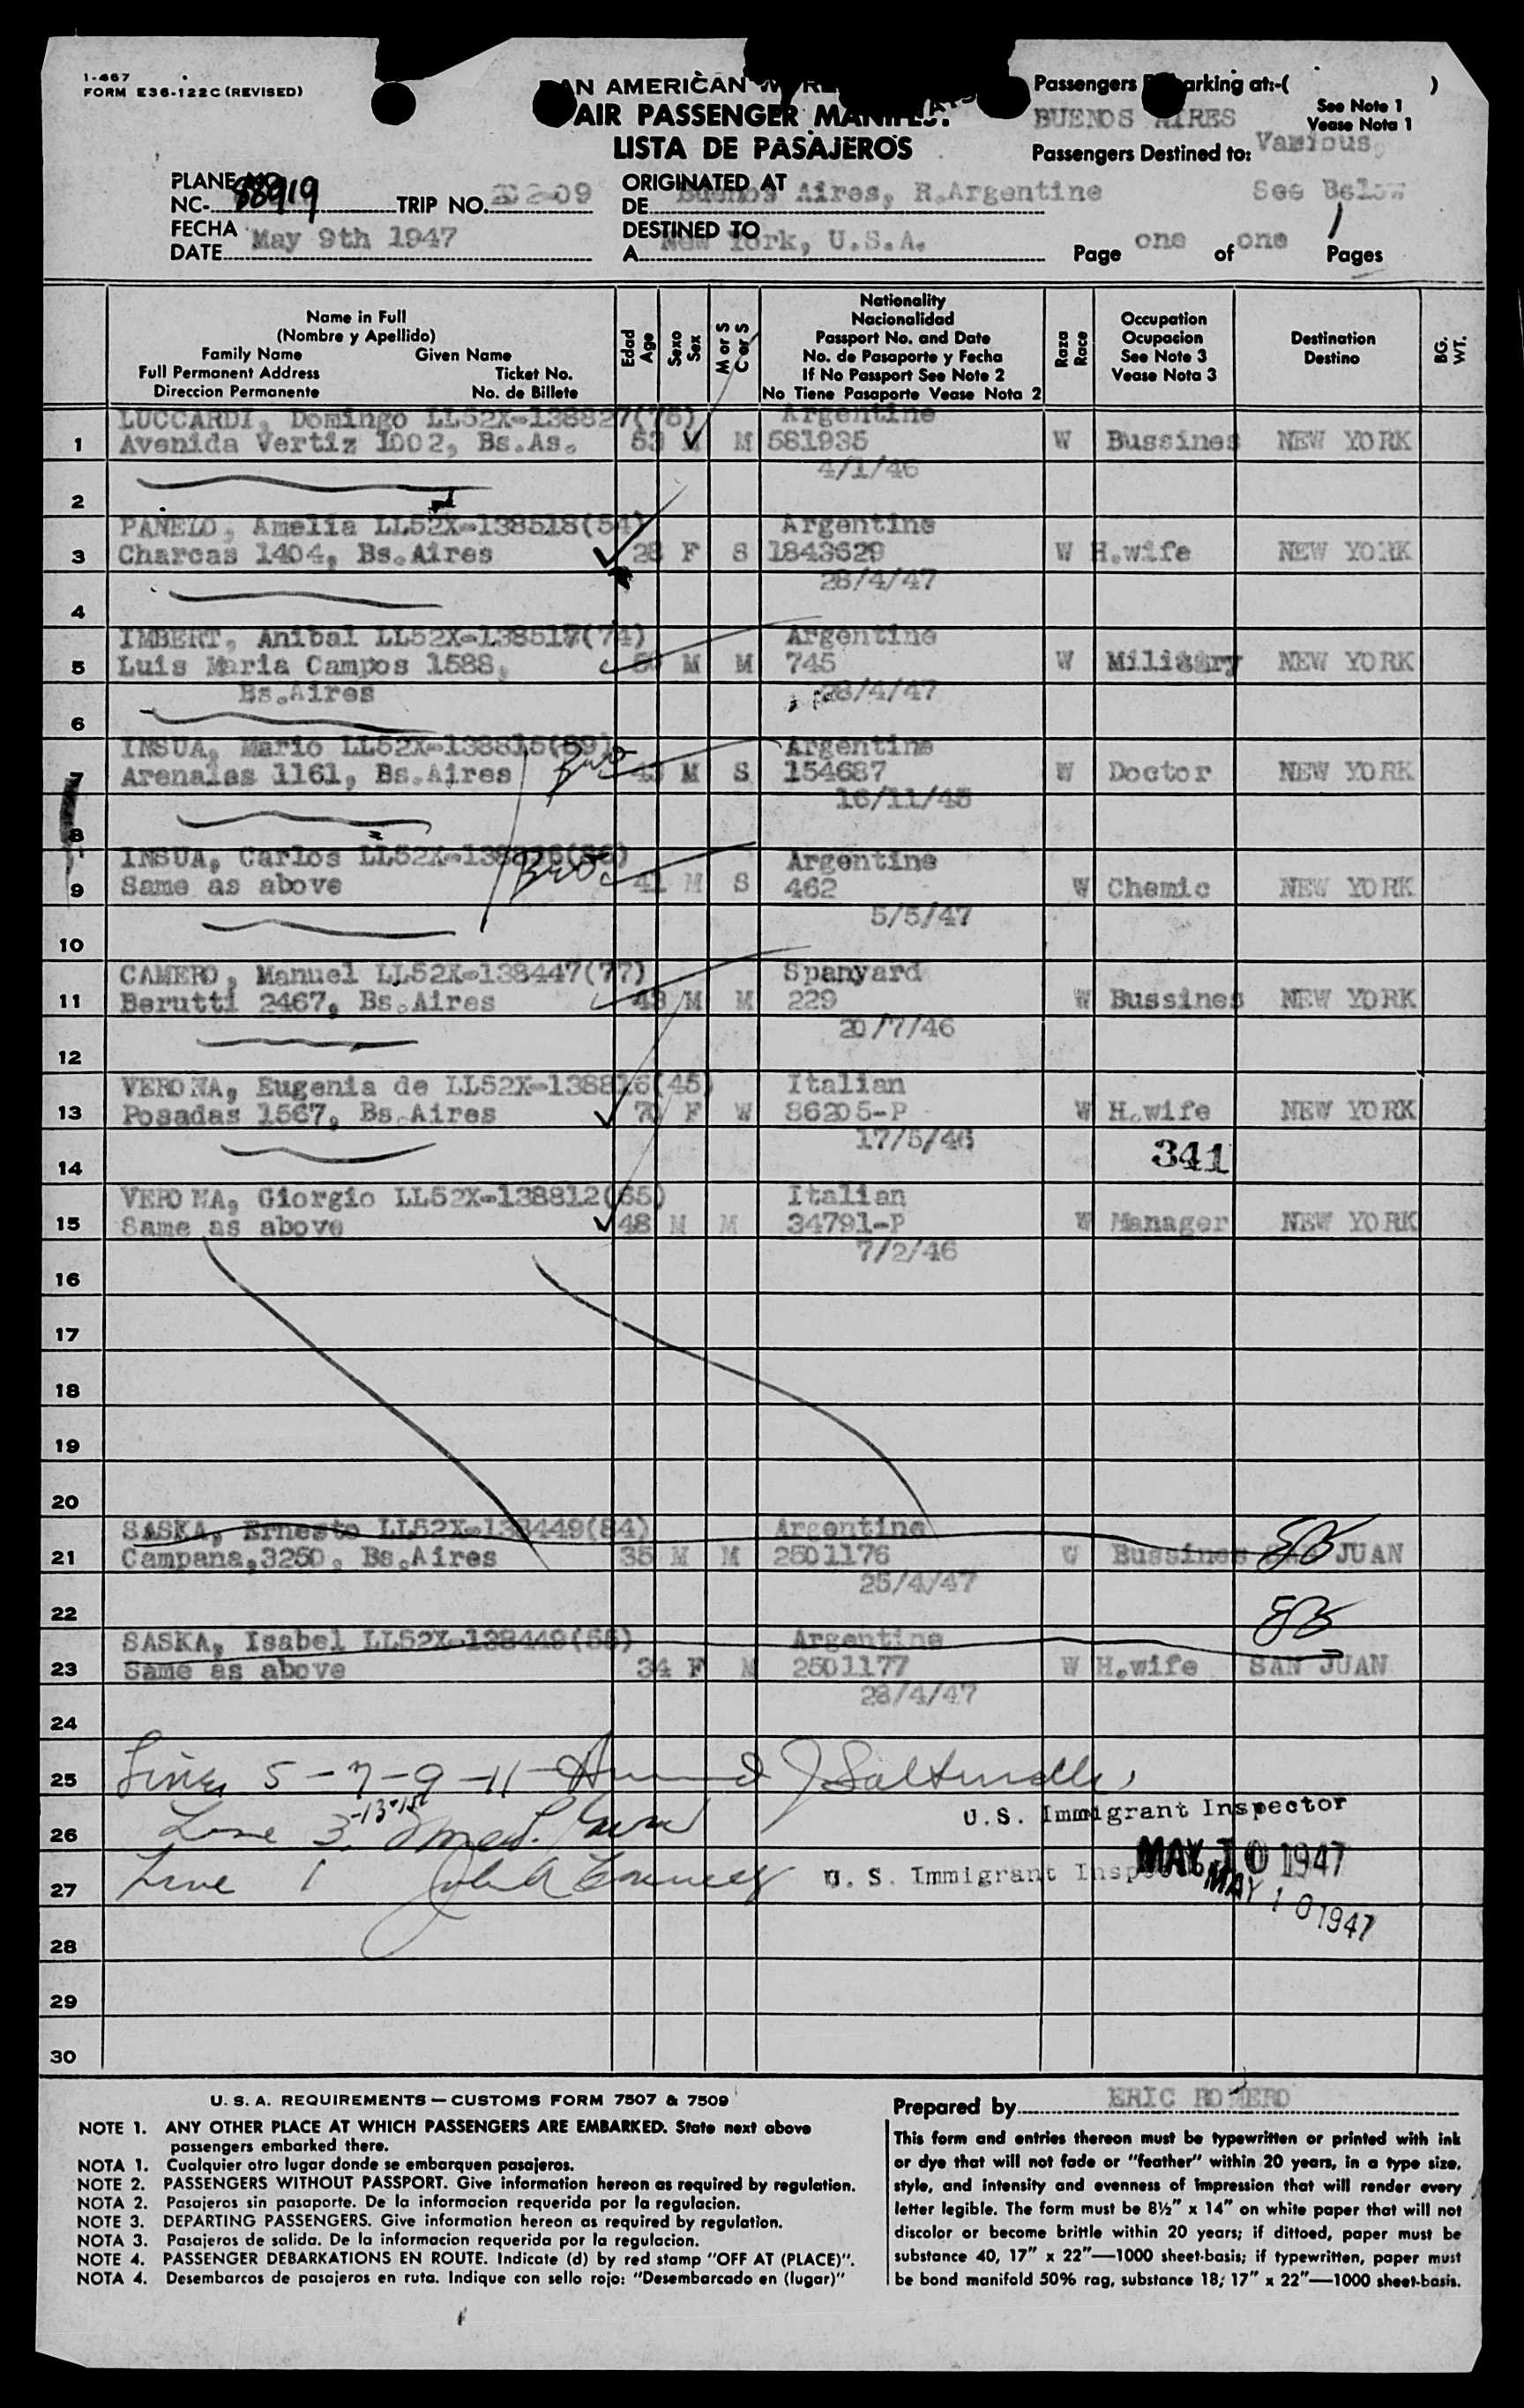 1-467
FORM E36-122C (REVISED)
PAN AMERICAN
AIR PASSENGER MANIFEST
LISTA DE PASAJEROS
Passengers Embarking at:-( )
BUENOS AIRES
See Note 1
Vease Nota 1
Passengers Destined to: Various,
See Below
PLANE NO.
NC- 88919 TRIP NO. 202-09
ORIGINATED AT
DE Buenos Aires, R.Argentine
FECHA
DATE May 9th 1947
DESTINED TO
A New York, U.S.A.
Page one of one Pages
1
Name in Full
(Nombre y Apellido)
Family Name Given Name
Full Permanent Address Ticket No.
Direccion Permanente No. de Billete
Edad
Age
Sexo
Sex
M or S
C or S
Nationality
Nacionalidad
Passport No. and Date
No. de Pasaporte y Fecha
If No Passport See Note 2
No Tiene Pasaporte Vease Nota 2
Raza
Race
Occupation
Ocupacion
See Note 3
Vease Nota 3
Destination
Destino
BG.
WT.
LUCCARDI, Domingo LL52X-138827(75) Argentine
1 Avenida Vertiz 1002, Bs.As. 53 M M 581935 W Bussines NEW YORK
4/1/46
2
PANELO, Amelia LL52X-138518(54) Argentine
3 Charcas 1404, Bs.Aires 28 F S 1843629 W H.wife NEW YORK
28/4/47
4
IMBERT, Anibal LL52X-138517(74) Argentine
5 Luis Maria Campos 1588, M M 745 W Military NEW YORK
Bs.Aires 28/4/47
6
INSUA, Mario LL52X-138815(89) Argentine
7 Arenales 1161, Bs.Aires 43 M S 154687 W Doctor NEW YORK
16/11/45
8
INSUA, Carlos Argentine
9 Same as above 41 M S 462 W Chemic NEW YORK
5/5/47
10
CAMERO, Manuel LL52X-138447(77) Spanyard
11 Berutti 2467, Bs.Aires 48 M M 229 W Bussines NEW YORK
20/7/46
12
VERONA, Eugenia de LL52X-138816(45) Italian
13 Posadas 1567, Bs.Aires 70 F W 86205-P W H.wife NEW YORK
17/5/46
341
14
VERONA, Giorgio LL52X-138812(65) Italian
15 Same as above 48 M M 34791-P W Manager NEW YORK
7/2/46
16
17
18
19
20
SASKA, Ernesto LL52X-138449(84) Argentine
21 Campana,3250, Bs.Aires 35 M M 2501176 W Bussines SAN JUAN
25/4/47
22
SASKA, Isabel LL52X-138449(55) Argentine
23 Same as above 34 F M 2501177 W H.wife SAN JUAN
28/4/47
24
25 Lines 5-7-9-11
U.S. Immigrant Inspector
-13-15
26 Line 3
MAY 10 1947
27 Line 1 U. S. Immigrant Inspector
MAY 10 1947
28
29
30
U. S. A. REQUIREMENTS — CUSTOMS FORM 7507 & 7509
NOTE 1. ANY OTHER PLACE AT WHICH PASSENGERS ARE EMBARKED. State next above
passengers embarked there.
NOTA 1. Cualquier otro lugar donde se embarquen pasajeros.
NOTE 2. PASSENGERS WITHOUT PASSPORT. Give information hereon as required by regulation.
NOTA 2. Pasajeros sin pasaporte. De la informacion requerida por la regulacion.
NOTE 3. DEPARTING PASSENGERS. Give information hereon as required by regulation.
NOTA 3. Pasajeros de salida. De la informacion requerida por la regulacion.
NOTE 4. PASSENGER DEBARKATIONS EN ROUTE. Indicate (d) by red stamp "OFF AT (PLACE)".
NOTA 4. Desembarcos de pasajeros en ruta. Indique con sello rojo: "Desembarcado en (lugar)"
Prepared by ERIC ROMERO
This form and entries thereon must be typewritten or printed with ink
or dye that will not fade or "feather" within 20 years, in a type size,
style, and intensity and evenness of impression that will render every
letter legible. The form must be 8½" x 14" on white paper that will not
discolor or become brittle within 20 years; if dittoed, paper must be
substance 40, 17" x 22"—1000 sheet-basis; if typewritten, paper must
be bond manifold 50% rag, substance 18; 17" x 22"—1000 sheet-basis.